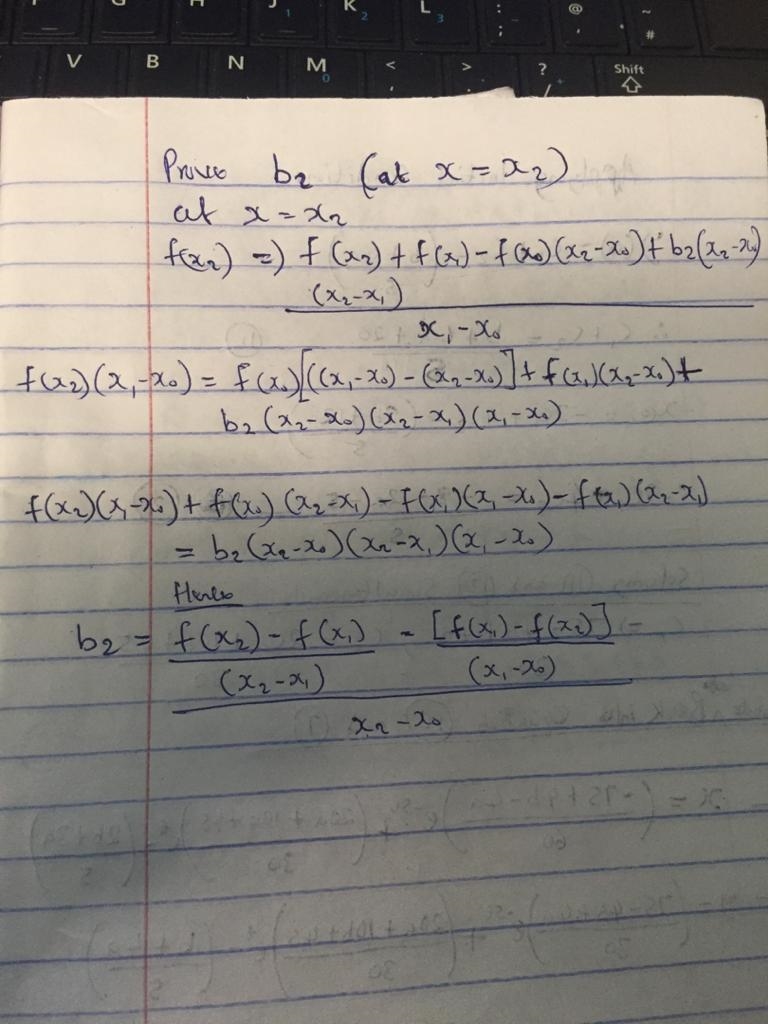 V B N M < > ? Shift
Prove b₂ (at x = x₂)
at x = x₂
f(x₂) =) f(x₂) + f(x₁) - f(x₀)(x₂-x₀) + b₂(x₂-x₀)
(x₂-x₁)
x₁-x₀
f(x₂)(x₁-x₀) = f(x₀)[((x₁-x₀) - (x₂-x₀)] + f(x₁)(x₂-x₀) +
b₂(x₂-x₀)(x₂-x₁)(x₁-x₀)
f(x₂)(x₁-x₀) + f(x₀)(x₂-x₁) - f(x₁)(x₁-x₀) - f(x₁)(x₂-x₁)
= b₂(x₂-x₀)(x₂-x₁)(x₁-x₀)
Hence
b₂ = f(x₂) - f(x₁) - [f(x₁) - f(x₂)] =
(x₂-x₁) (x₁-x₀)
x₂-x₀